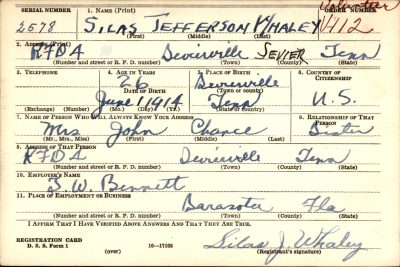 SERIAL NUMBER 1. NAME (Print) ORDER NUMBER
Volunteer
2578 SILAS JEFFERSON WHALEY 412
(First) (Middle) (Last)
2. ADDRESS (Print)
RFD 4 Sevierville SEVIER Tenn
(Number and street or R. F. D. number) (Town) (County) (State)
3. TELEPHONE 4. AGE IN YEARS 5. PLACE OF BIRTH 6. COUNTRY OF CITIZENSHIP
26 Sevierville
DATE OF BIRTH (Town or county)
June 1 1914 Tenn U.S.
(Exchange) (Number) (Mo.) (Day) (Yr.) (State or country)
7. NAME OF PERSON WHO WILL ALWAYS KNOW YOUR ADDRESS 8. RELATIONSHIP OF THAT PERSON
Mrs John Chance Sister
(Mr., Mrs., Miss) (First) (Middle) (Last)
9. ADDRESS OF THAT PERSON
RFD 4 Sevierville Tenn
(Number and street or R. F. D. number) (Town) (County) (State)
10. EMPLOYER'S NAME
J. W. Bennett
11. PLACE OF EMPLOYMENT OR BUSINESS
Sarasota Fla
(Number and street or R. F. D. number) (Town) (County) (State)
I AFFIRM THAT I HAVE VERIFIED ABOVE ANSWERS AND THAT THEY ARE TRUE.
REGISTRATION CARD
D. S. S. Form 1 (over) 16—17105 Silas J. Whaley
(Registrant's signature)